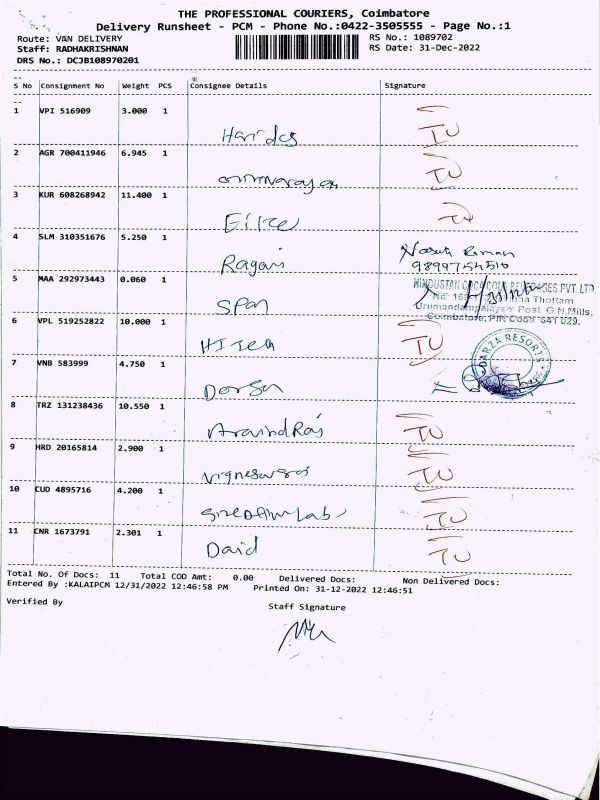 THE PROFESSIONAL COURIERS, Coimbatore
Delivery Runsheet - PCM - Phone No.:0422-3505555 - Page No.:1
Route: VAN DELIVERY RS No.: 1089702
Staff: RADHAKRISHNAN RS Date: 31-Dec-2022
DRS No.: DCJB108970201
S No Consignment No Weight PCS Consignee Details Signature
1 VPI 516909 3.000 1
Haridas
2 AGR 700411946 6.945 1
3 KUR 608268942 11.400 1
4 SLM 310351676 5.250 1
Ragavi
9899754516
5 MAA 292973443 0.060 1
HINDUSTAN COCA COLA BEVERAGES PVT. LTD.
Span
Thottam
Post G.N.Mills,
Coimbatore, PIN Code 641 029.
6 VPL 519252822 10.000 1
7 VNB 583999 4.750 1
DARZA RESORTS
8 TRZ 131238436 10.550 1
Aravind Raj
9 HRD 20165814 2.900 1
10 CUD 4895716 4.200 1
11 CNR 1673791 2.301 1
David
Total No. Of Docs: 11 Total COD Amt: 0.00 Delivered Docs: Non Delivered Docs:
Entered By :KALAIPCM 12/31/2022 12:46:58 PM Printed On: 31-12-2022 12:46:51
Verified By Staff Signature